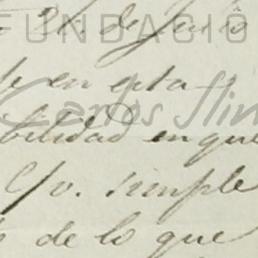 FUNDACIÓ
21. de Junio
de en esta
Carlos Slim
bilidad en que
C/o. simple
de lo que